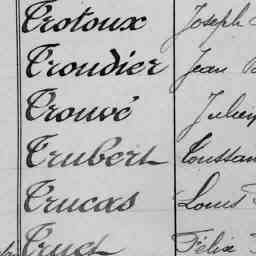 Trotoux Joseph
Troudier Jean
Trouvé Julien
Trubert Toussan
Trucas Louis
Truet Félix